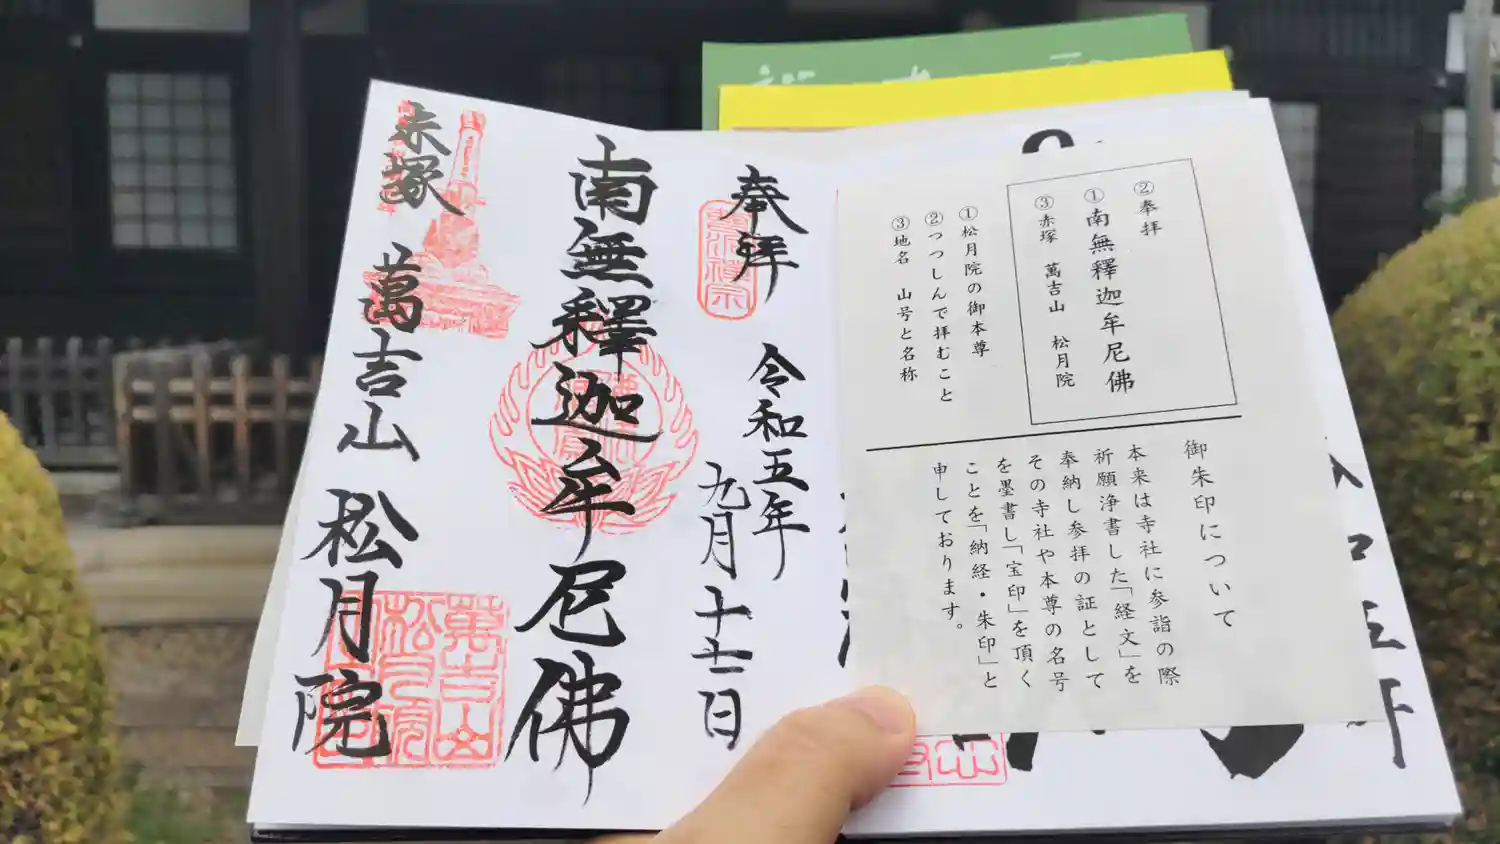 奉拝
令和五年
九月十七日
南無釋迦牟尼佛
赤塚 萬吉山 松月院
萬吉山
松月院
②奉拝
①南無釋迦牟尼佛
③赤塚 萬吉山 松月院
①松月院の御本尊
②つつしんで拝むこと
③地名 山号と名称
御朱印について
本来は寺社に参詣の際
祈願浄書した「経文」を
奉納し参拝の証として
その寺社や本尊の名号
を墨書し「宝印」を頂く
ことを「納経・朱印」と
申しております。